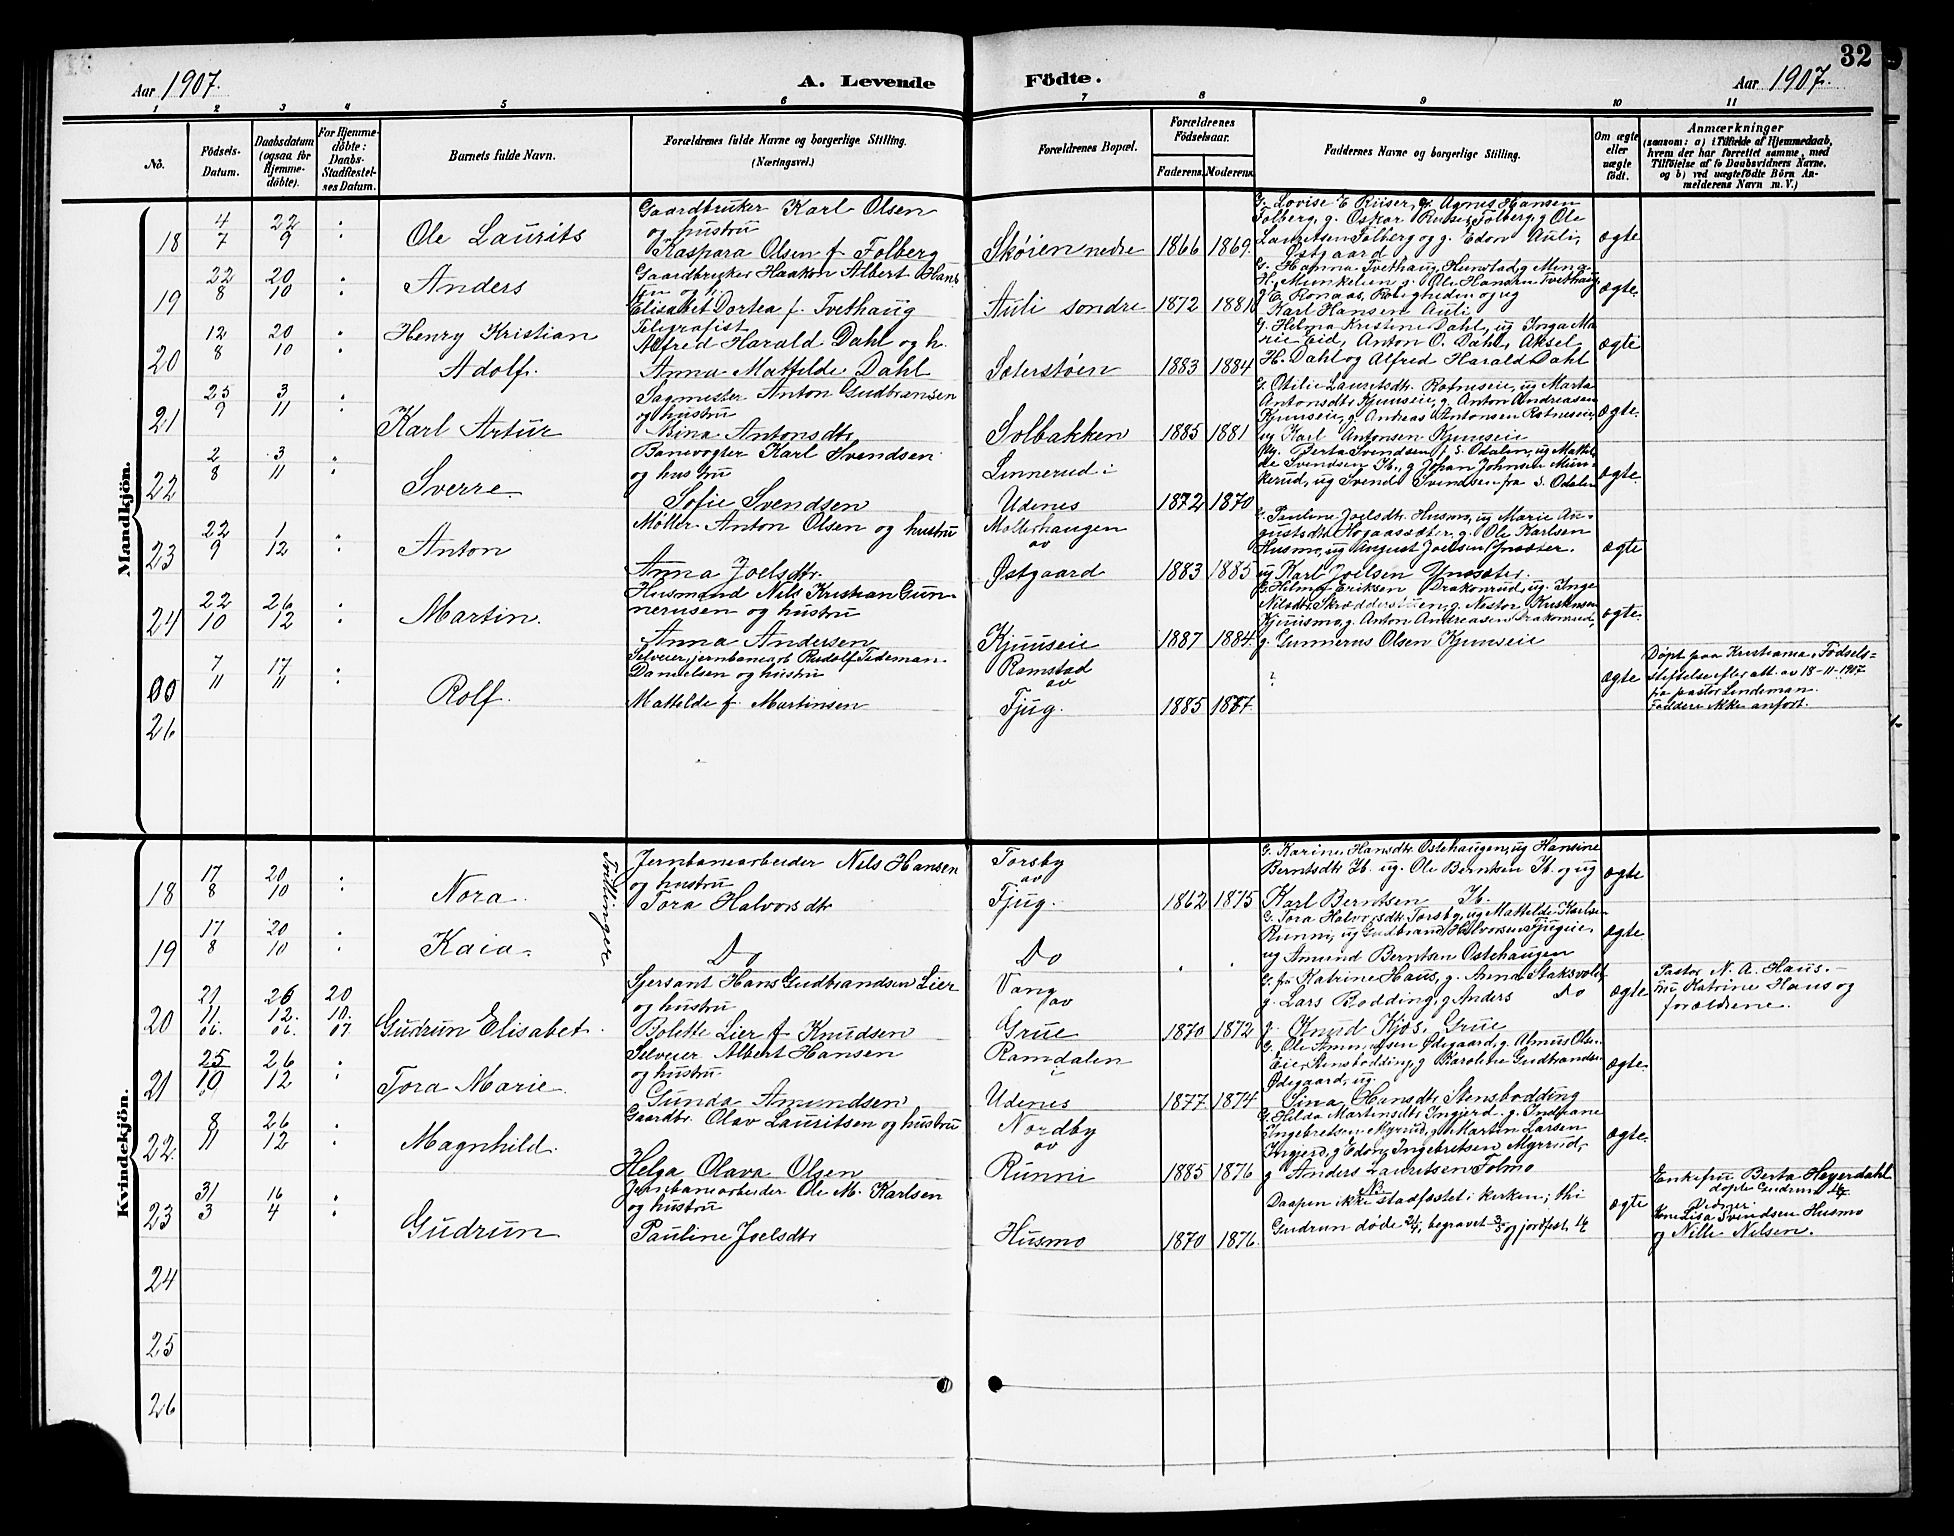 32
Aar 1907.
A. Levende Födte.
Aar 1907.
1 2 3 4 5 6 7 8 9 10 11
No.
Födsels-Datum.
Daabsdatum (ogsaa for Hjemme-döbte).
For Hjemme-döbte: Daabs-Stadfæstel-ses Datum.
Barnets fulde Navn.
Forældrenes fulde Navne og borgerlige Stilling. (Næringsvei.)
Forældrenes Bopæl.
Forældrenes Födselsaar.
Faderens. Moderens.
Faddernes Navne og borgerlige Stilling.
Om ægte eller uægte födt.
Anmærkninger
(saasom: a) i Tilfælde af Hjemmedaab,
hvem der har forrettet samme, med
Tilföielse af to Daabsvidners Navne,
og b) ved uægtefödte Börn An-
melderens Navn m. V.)
Mandkjön.
18 4/7 22/9 : Ole Laurits
Gaardbruker Karl Olsen
og hustru
Kaspara Olsen f. Folberg
Skøien nedre 1866 1869.
G. Lovise E Ruser, g. Agnes Hansen
Folberg, g. Oskar Ruser Folberg, g Ole
Lauritsen Folberg og g. Edon Auli,
Østgaard
ægte
19 22/8 20/10 : Anders
Gaardbruker Haakon Albert Han-
sen og h.
Elisabet Dortea f. Tvethaug
Auli søndre 1872 1881
G. Hanna Tvethaug, Hunstad, g Mina
H. Munkelien g. Ole Hansen Tvethaug
g E. Ronaas, Roligheden og ug
Karl Hansen Auli
ægte.
20 12/8 20/10 : Henry Kristian
Adolf.
Telegrafist
Alfred Harald Dahl og h.
Anna Mathilde Dahl
Sæterstøen 1883 1884
G. Helma Kristine Dahl, ug Inga Ma-
rie Eid, Anton O. Dahl, Aksel
H. Dahl og Alfred Harald Dahl
ægte
21 25/9 3/11 : Karl Artur
Sagmester Anton Gudbransen
og hustru
Mina Antonsdtr.
Solbakken 1885 1881
G. Otilie Lauritsdtr. Rotneseie, ug Marta
Antonsdtr Kjuuseie, g. Anton Andreasen
Kjuuseie, g. Andreas Antonsen Rotneseie,
ug Karl Antonsen Kjuuseie
ægte.
22 2/8 3/11 : Sverre.
Banevogter Karl Svendsen
og hustru
Sofie Svendsen
Linnerud i
Udenes 1872 1870
Ug. Berta Svendsen f. S. Odalen, ug Matil-
de Svendsen Ib., g Johan Johnsen Mun-
kerud, ug Svend Svendsen fra S. Odalen
ægte.
23 22/9 1/12 : Anton
Møller Anton Olsen og hustru
Anna Joelsdtr.
Møllerhaugen
av
Østgaard 1883 1885
G. Pauline Joelsdtr. Husmo, ug Marie Au-
gustsdtr Hogaassæter, g. Ole Karlsen
Husmo, ug August Joelsen Ynsæter.
ug Karl Joelsen Ynsæter.
ægte
24 22/10 26/12 : Martin.
Husmand Nils Kristian Gun-
nerusen og hustru
Anna Andersen
Kjuuseie 1887 1884.
G. Hilma Eriksen Drakonrud, ug. Inge
Nilsdtr. Skrædderstuen, g. Nestor Kristensen
Kjuusmo, g. Anton Andreasen Drakonrud,
g. Gunnerus Olsen Kjuuseie
ægte.
7/11 17/11 : Rolf.
Selveier, jernbanearb. Rudolf Tideman-
Danielsen og hustru
Matelde f. Martinsen
Ramstad
av
Fjug. 1885 1887.
?
ægte
Døpt paa Kristiania Fødsels=
stiftelse efter att. av 18-11-1907
fra pastor Lindeman.
Faddere ikke anført.
26
Kvindekjön.
Tvillinger
18 17/8 20/10 : Nora.
Jernbanearbeider Nils Hansen
og hustru
Tora Halvorsdtr
Torsby
av
Fjug. 1862 1875
G. Karine Hansdtr. Ostehaugen, ug Hansine
Berntsdtr Ib. ug. Ole Berntsen Ib. og ug
Karl Berntsen Ib.
ægte
19 17/8 20/10 : Kaia.
Do
Do . .
G. Tora Halvorsdtr. Torsby, ug Mathilde Karlsen
Runni, ug Gudbrand Halvorsen Fjugeie,
ug Amund Berntsen Ostehaugen
ægte.
20 21/11 06. 26/12. 06. 20/10. 07 Gudrun Elisabet.
Sjersant Hans Gudbrandsen Lier
og hustru
Bolette Lier f. Knudsen
Vang
av
Grue 1870 1872
G. fr Katrine Haus, g. Anna Staksvold,
g. Lars Rodding, g Anders Do
g. Knud Kjøs, Grue
ægte
Pastor N. A. Haus. -
fru Katrine Haus og
forældrene.
21 25/10 26/12 : Tora Marie.
Selveier Albert Hansen
og hustru.
Gunda Amundsen
Ramdalen
i
Udenes 1877 1874
G. Ole Amundsen Ødegaard, g. Almus Ols.
Eier Stensbødding, g Karoline Gudbrandsen
Ødegaard, ug.
Lina Hansdtr. Stensbødding
ægte.
22. 8/11 26/12 : Magnhild.
Gaardbr. Olav Lauritsen og hustru
Helga Olava Olsen
Nordby
av
Runni 1885 1876
G. Hilda Martinsdtr. Ingjerd. g. Indiane
Ingebretsen Myrrud, g. Martin Larsen
Ingjerd, g Edon Ingebretsen Myrrud,
g Anders Lauritsen Tolmo
ægte.
23 31/3 16/4 : Gudrun
Jernbanearbeider Ole M. Karlsen
og hustru
Pauline Joelsdtr
Husmo 1870 1876
Daapen ikke stadfæstet i kirken, thi
Gudrun døde 24/4, begravet 3/5 og jordfest.
ægte
Enkefru Berta Heyerdahl
døpte Gudrun 16/4
Vidner
Svendsen Husmo
og Nille Nilsen.
24
25
26